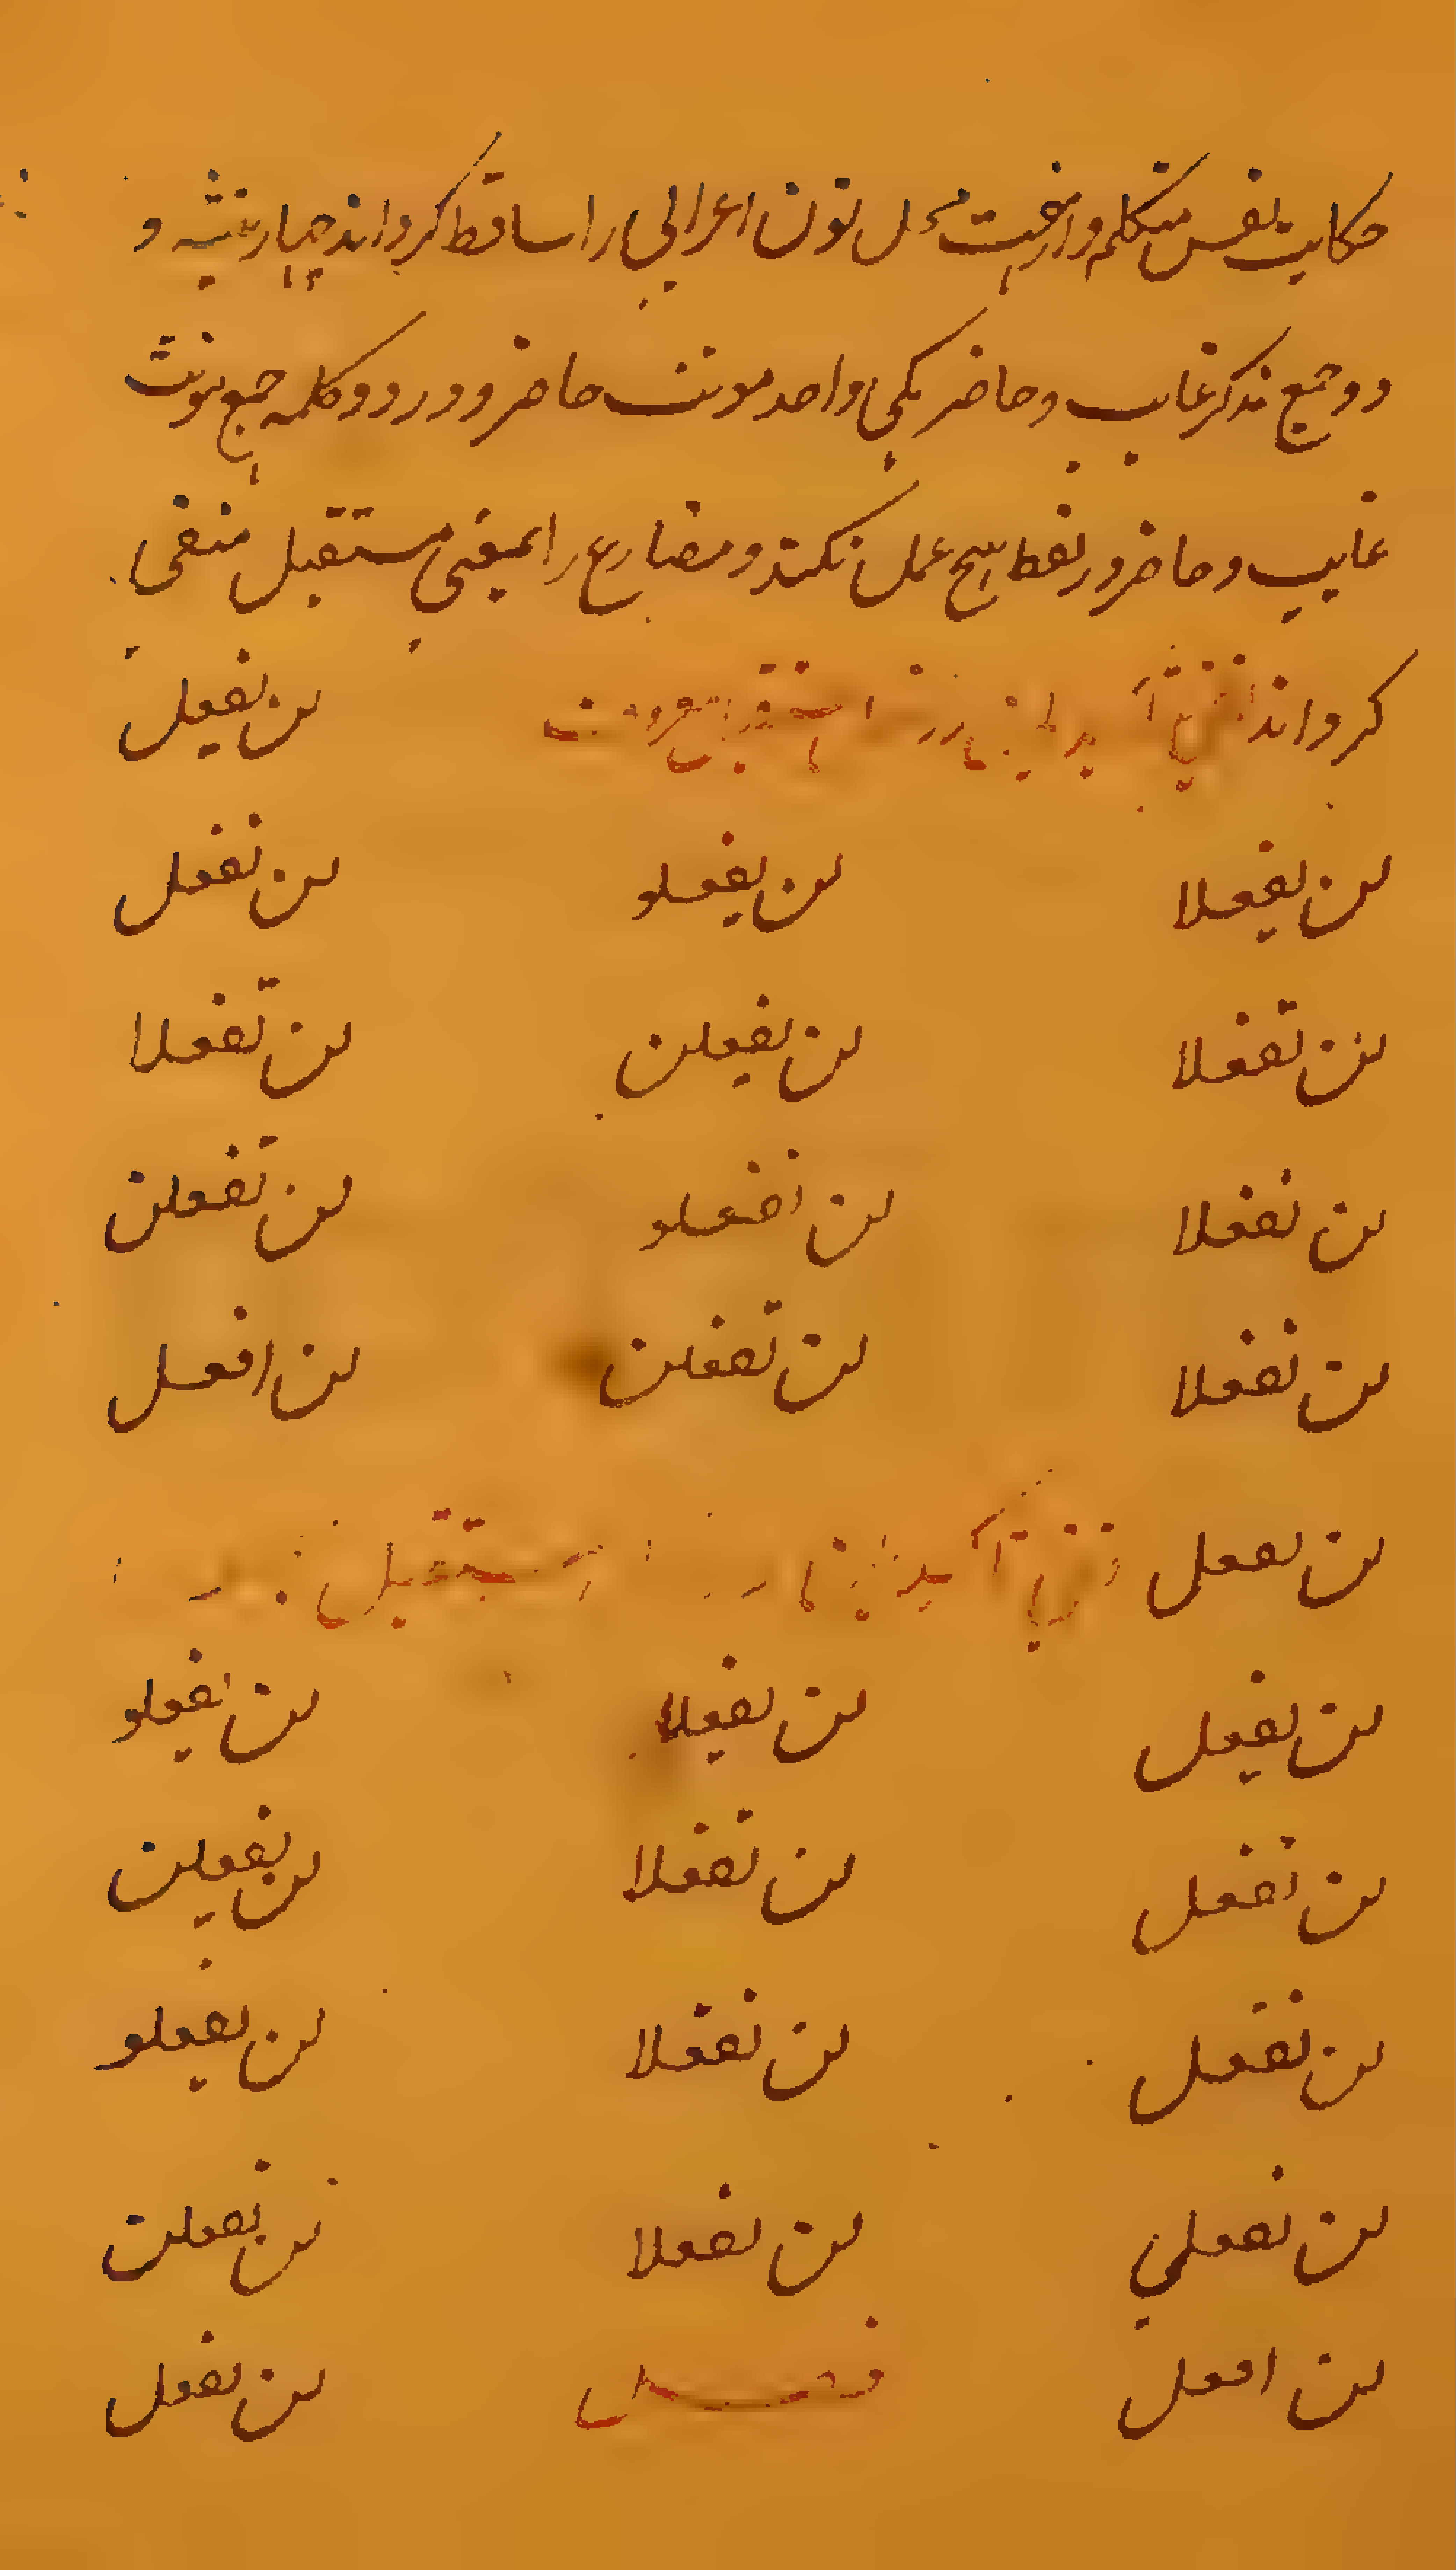 حکایت نفس متکلم و از هفت محل نون اعرابی را ساقط کرداند چهار تثنیه و
دو جمع مذکر غایب و حاضر یکی واحد مونث حاضر و در دو کلمه جمع مونث
غایب و حاضر در لفظ هیچ عمل نکند و مضارع را بمعنی مستقبل منفی
کرداند نفی تاکید بلن در فعل مستقبل معروف لن یفعل
لن یفعلا لن یفعلو لن تفعل
لن تفعلا لن یفعلن لن تفعلا
لن تفعلا لن تفعلو لن تفعلن
لن تفعلا لن تفعلن لن افعل
لن نفعل نفی تاکید بلن در فعل مستقبل
لن یفعل لن یفعلا لن یفعلو
لن تفعل لن تفعلا لن یفعلن
لن تفعل لن تفعلا لن یفعلو
لن تفعلی لن تفعلا لن تفعلن
لن افعل فصل لن نفعل